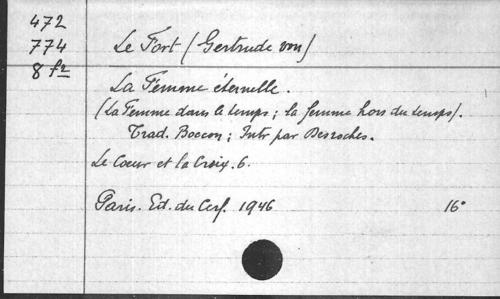 472
774
8 f²
Le Fort (Gertrude von)
La Femme éternelle.
(La Femme dans le temps ; la femme hors du temps).
Trad. Boccon ; Intr par Desroches.
Le Coeur et la Croix. 6.
Paris. Ed. du Cerf. 1946 16°